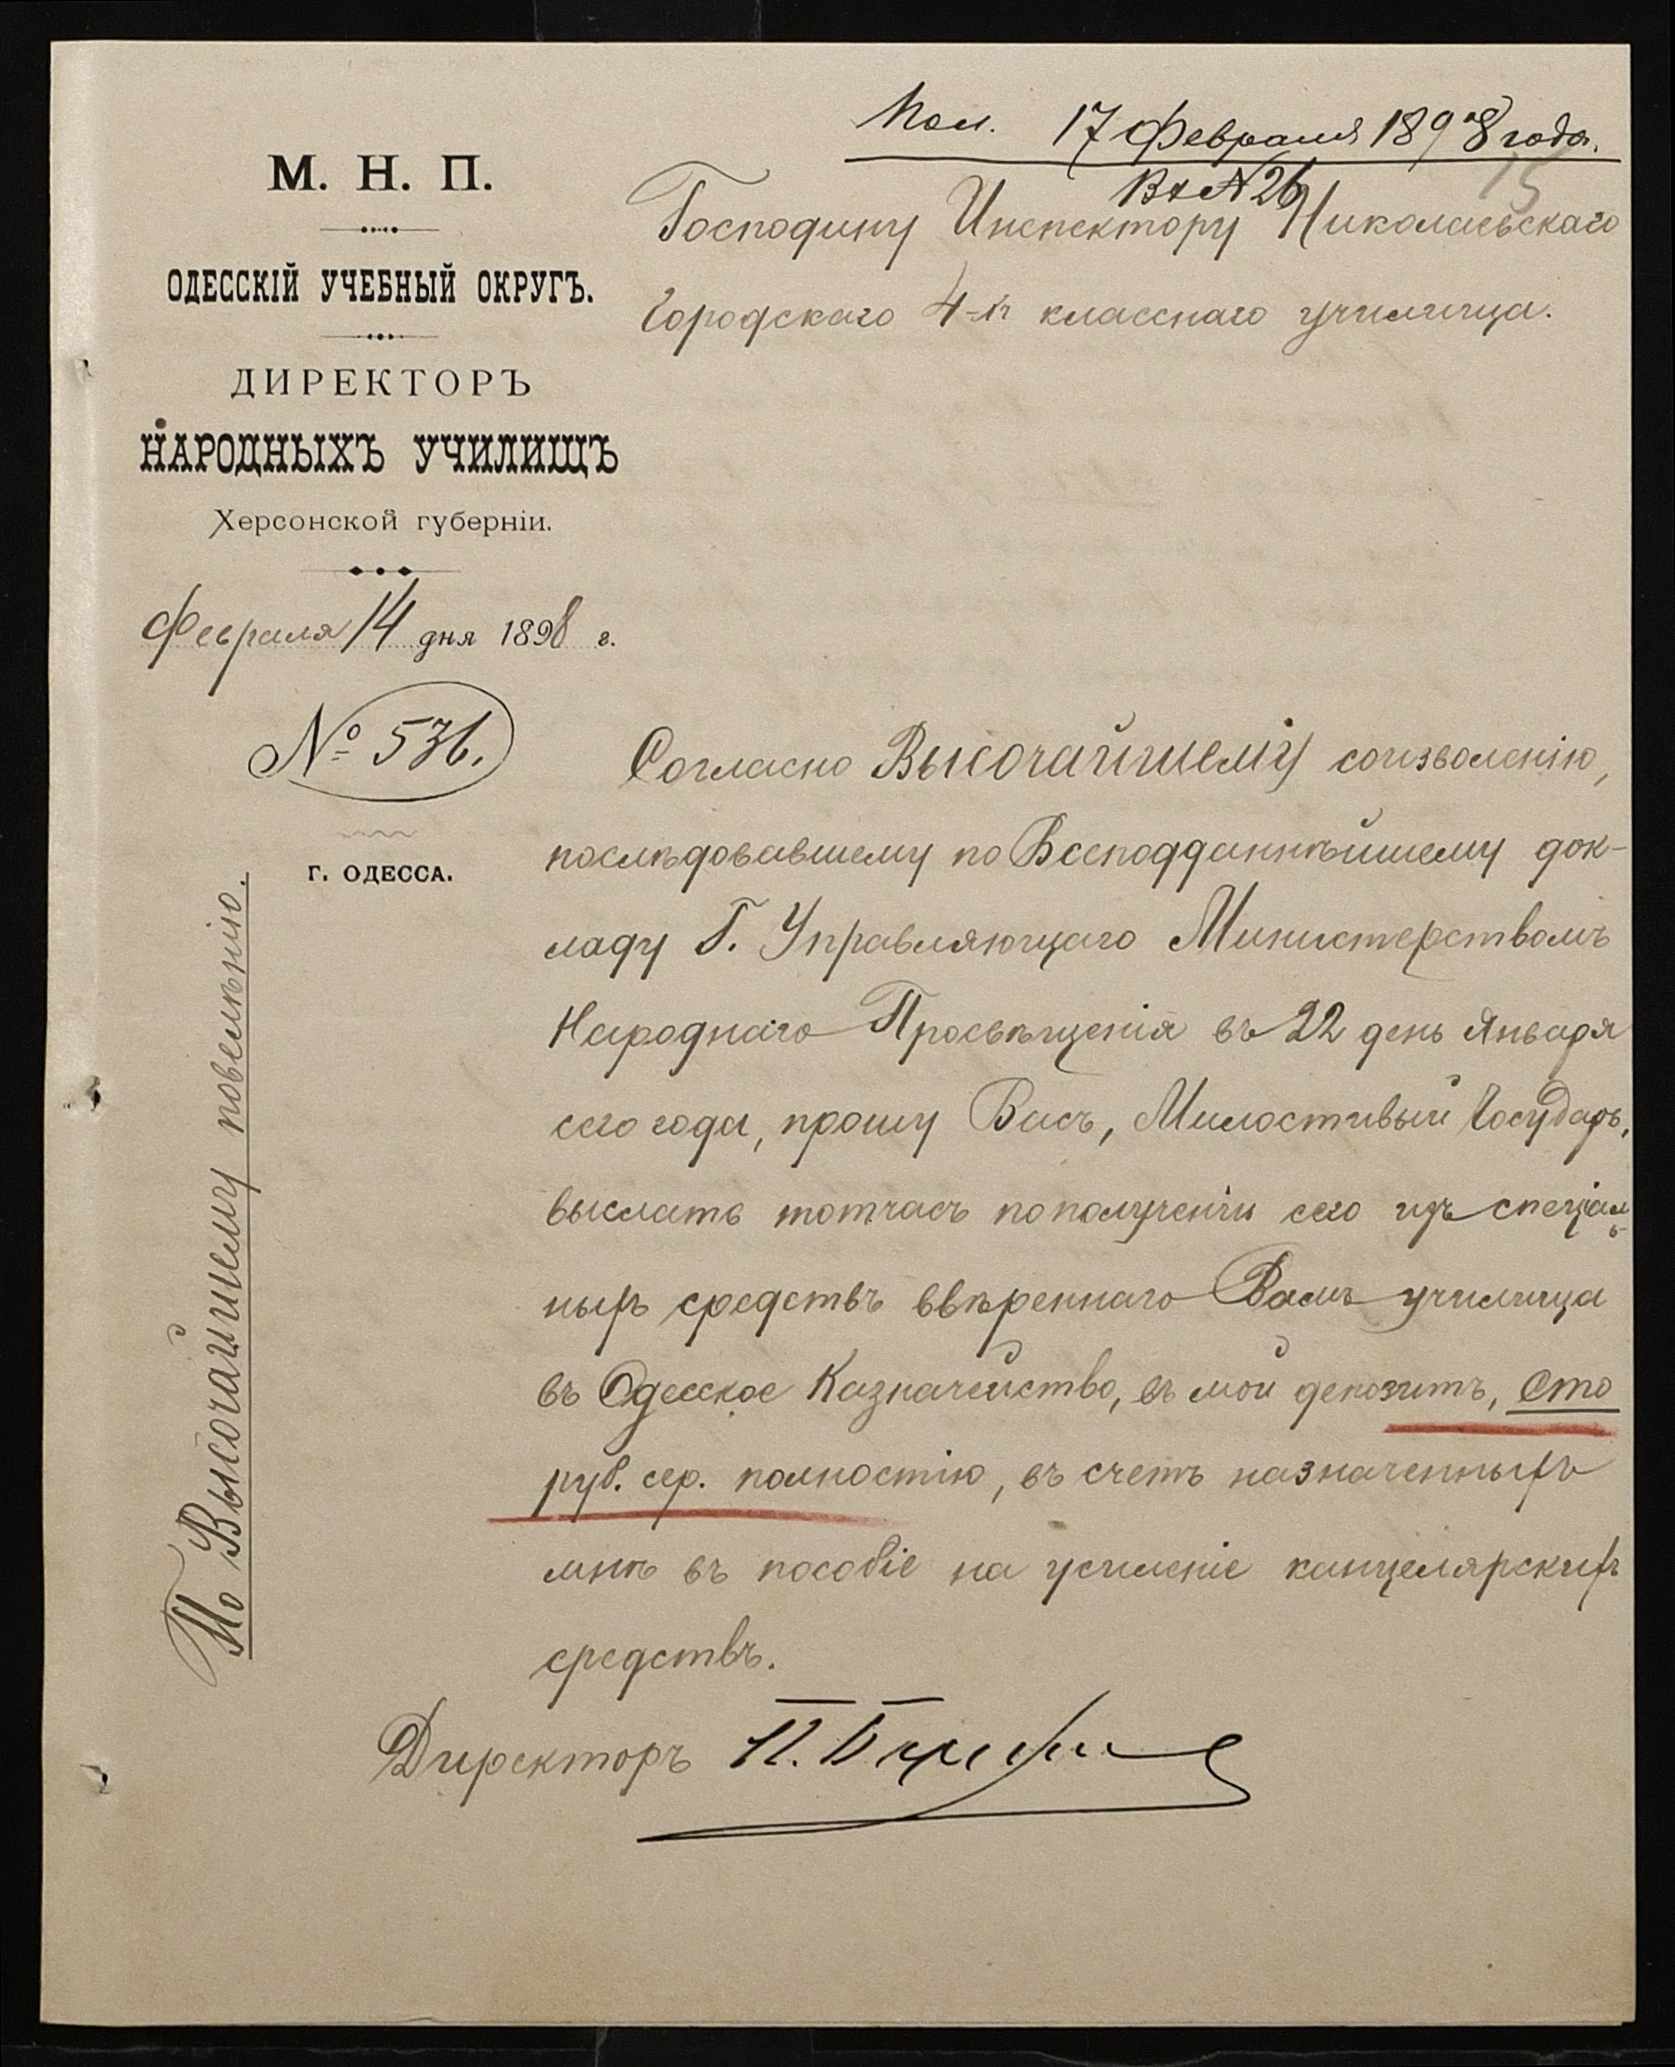 Пол. 17 Февраля 1898 года.
Вх № 26
15
М. Н. П.
ОДЕССКІЙ УЧЕБНЫЙ ОКРУГЪ.
ДИРЕКТОРЪ
НАРОДНЫХЪ УЧИЛИЩЪ
Херсонской губерніи.
Февраля 14 дня 1898 г.
№ 536.
г. ОДЕССА.
По Высочайшему повелѣнію.
Господину Инспектору Николаевскаго
Городскаго 4-хъ класснаго училища.
Согласно Высочайшему соизволенію,
послѣдовавшему по Всеподданнѣйшему док-
ладу Г. Управляющаго Министерствомъ
Народнаго Просвѣщенія въ 22 день Января
сего года, прошу Васъ, Милостивый Государь,
выслать тотчасъ по полученіи сего изъ спеціаль-
ныхъ средствъ ввѣреннаго Вамъ училища
въ Одесское Казначейство, въ мой депозитъ, сто
руб. сер. полностію, въ счетъ назначенныхъ
мнѣ въ пособіе на усиленіе канцелярскихъ
средствъ.
Директоръ П.